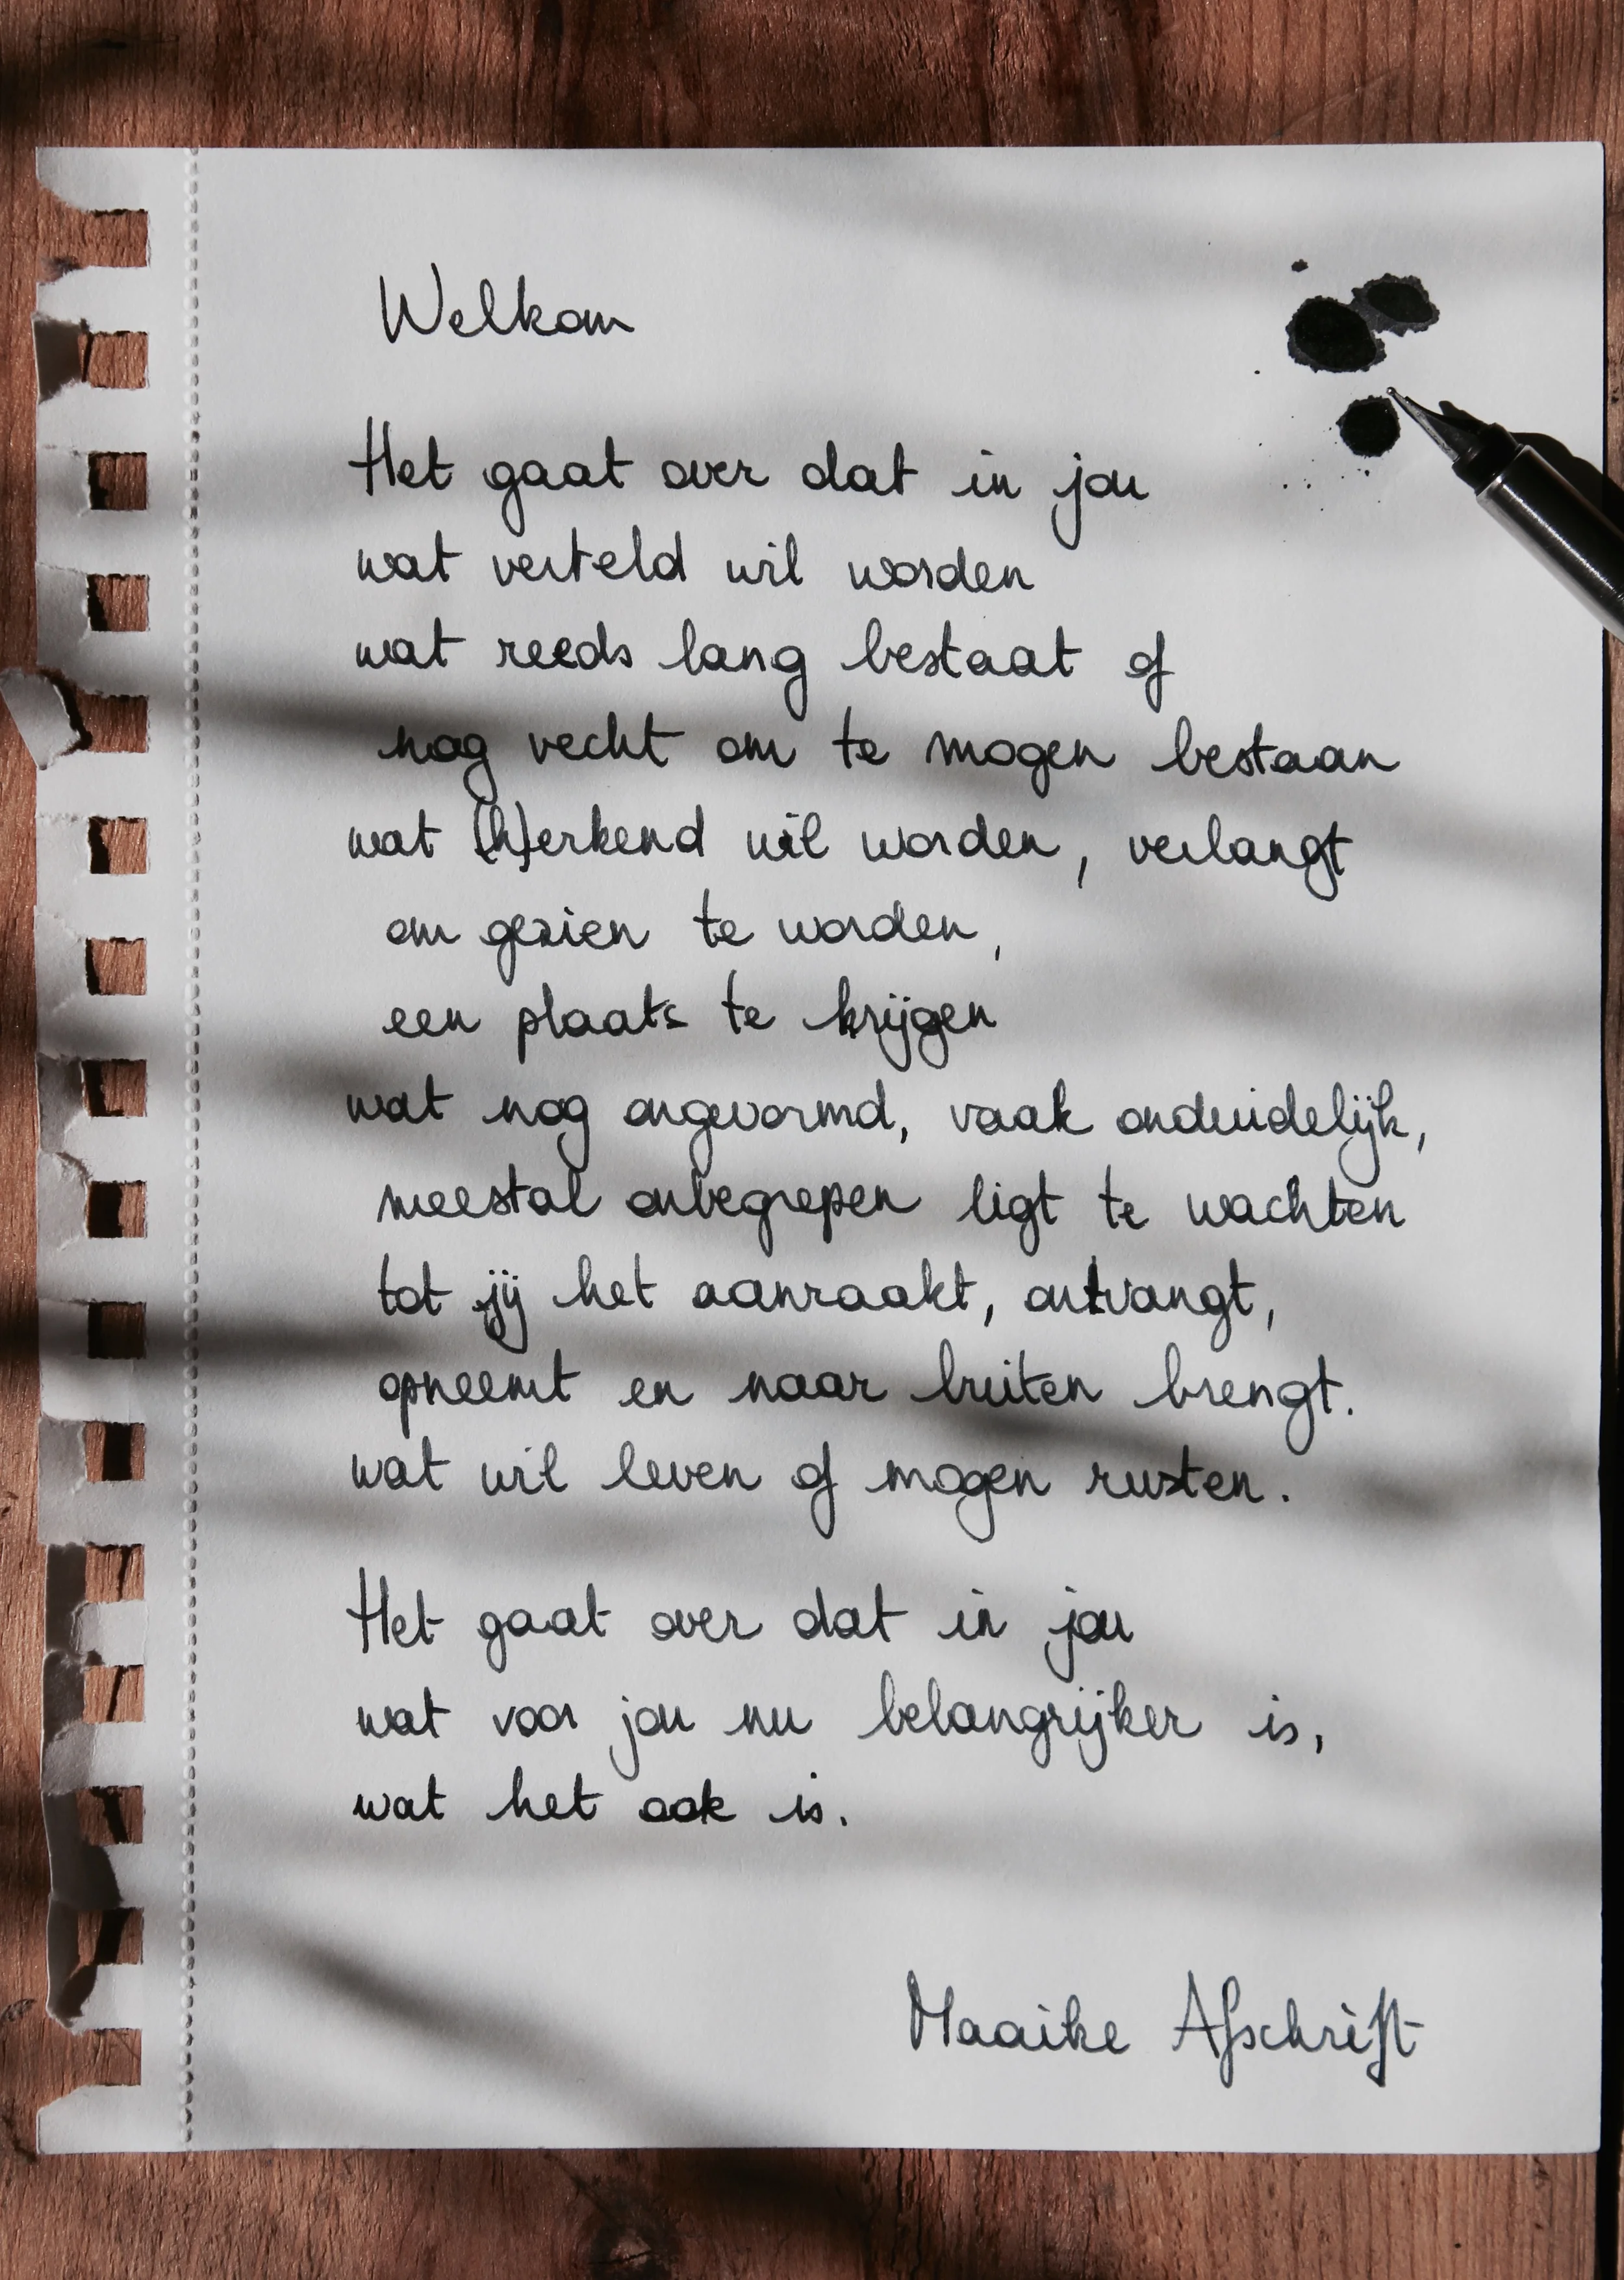 Welkom
Het gaat over dat in jou
wat verteld wil worden
wat reeds lang bestaat of
nog vecht om te mogen bestaan
wat (h)erkend wil worden, verlangt
om gezien te worden,
een plaats te krijgen
wat nog ongevormd, vaak onduidelijk,
meestal onbegrepen ligt te wachten
tot jij het aanraakt, ontvangt,
opneemt en naar buiten brengt.
wat wil leven of mogen rusten.
Het gaat over dat in jou
wat voor jou nu belangrijker is,
wat het ook is.
Maaike Afschrift